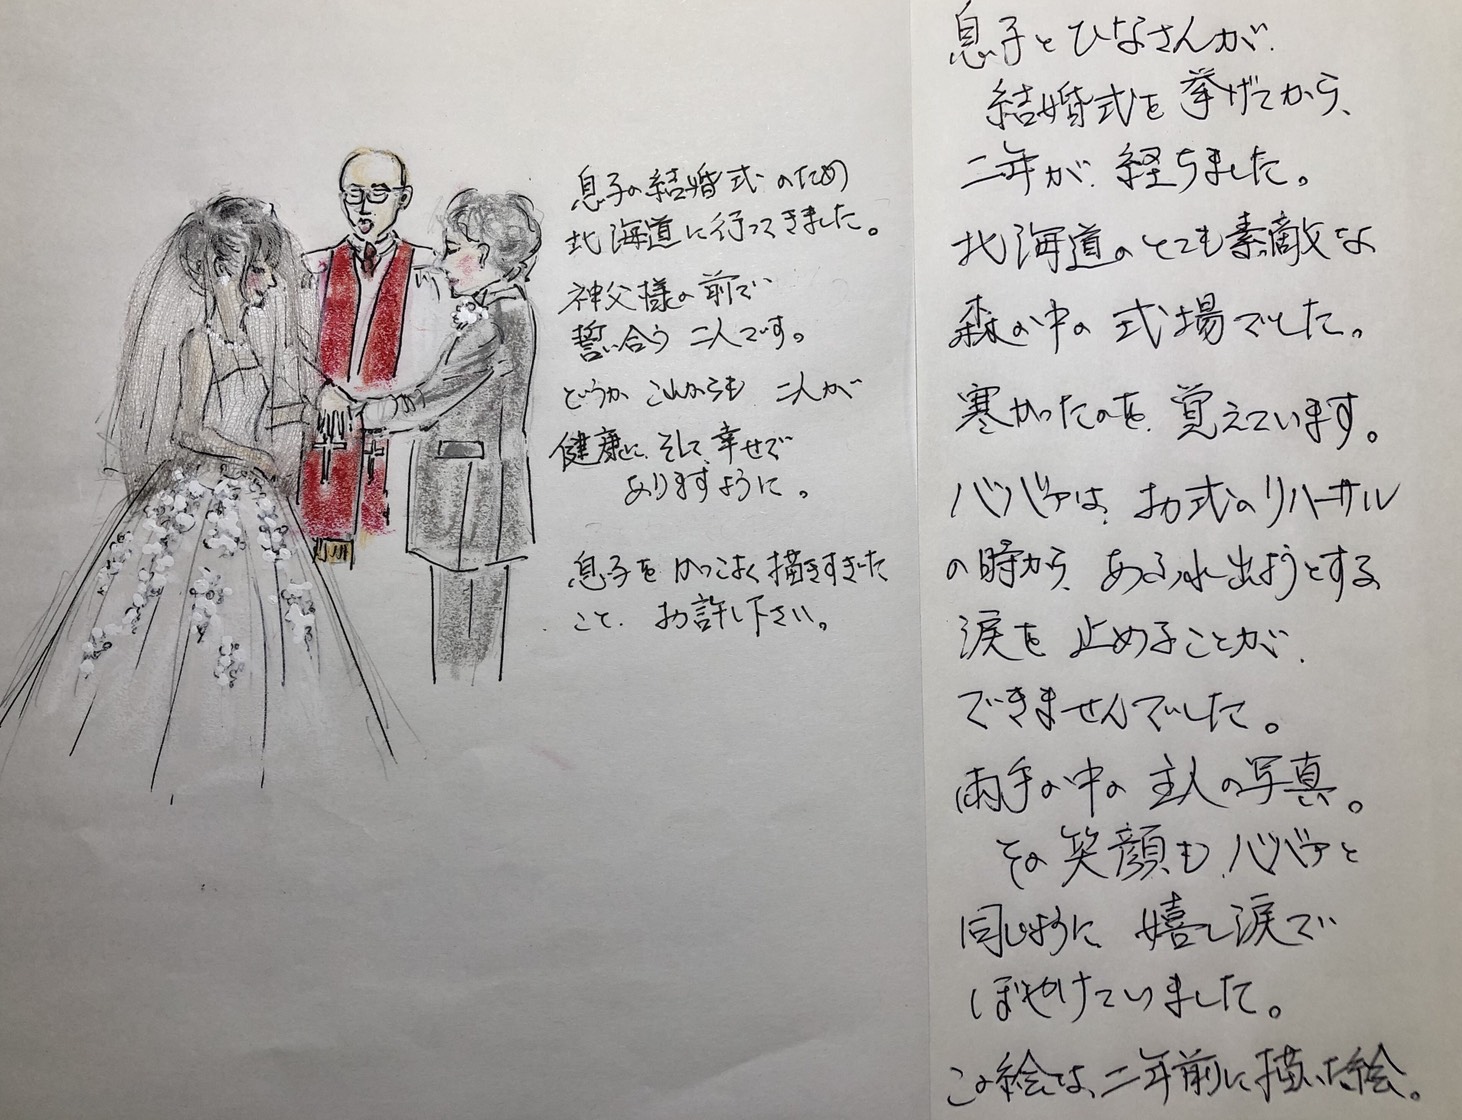 息子の結婚式のため
北海道に行ってきました。
神父様の前で
誓い合う二人です。
どうかこれからも二人が
健康に、そして、幸せで
ありますように。
息子をかっこよく描きすぎた
こと、お許し下さい。
息子とひなさんが、
結婚式を挙げてから、
二年が、経ちました。
北海道のとても素敵な
森の中の式場でした。
寒かったのを、覚えています。
ババァは、お式のリハーサル
の時から、あふれ出ようとする
涙を止めることが、
できませんでした。
両手の中の主人の写真。
その笑顔も、ババァと
同じように、嬉し涙で
ぼやけていました。
この絵は、二年前に描いた絵。